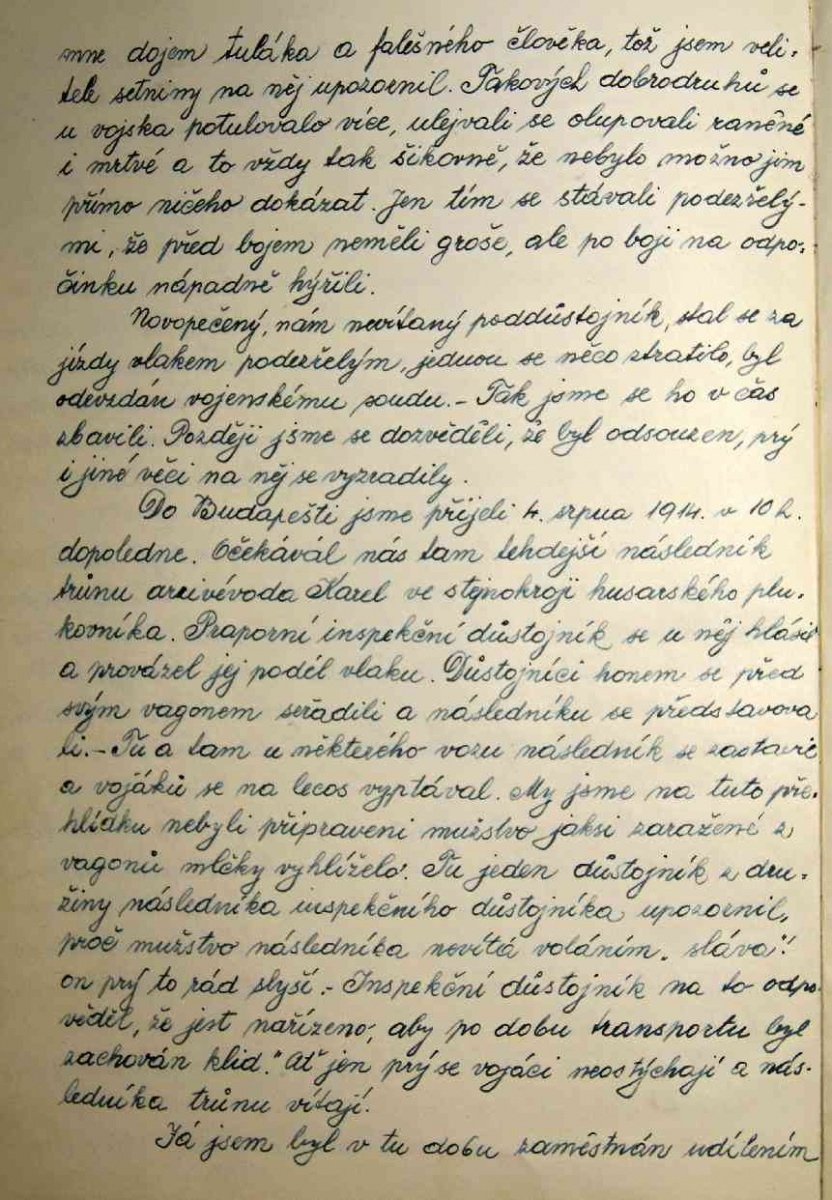 mne dojem tuláka a falešného člověka, tož jsem veli-
tele setniny na něj upozornil. Takových dobrodruhů se
u vojska potulovalo více, ulejvali se olupovali raněné
i mrtvé a to vždy tak šikovně, že nebylo možno jim
přímo ničeho dokázat. Jen tím se stávali podezřelý-
mi, že před bojem neměli groše, ale po boji na odpo-
činku nápadně hýřili.
Novopečený, nám nevítaný poddůstojník, stal se za
jízdy vlakem podezřelým, jednou se něco ztratilo, byl
odevzdán vojenskému soudu. - Tak jsme se ho v čas
zbavili. Později jsme se dozvěděli, že byl odsouzen, prý
i jiné věci na něj se vyzradily.
Do Budapešti jsme přijeli 4. srpna 1914. v 10 h.
dopoledne. Očekával nás tam tehdejší následník
trůnu arcivévoda Karel ve stejnokroji husarského plu-
kovníka. Praporní inspekční důstojník se u něj hlásil
a provázel jej podél vlaku. Důstojníci honem se před
svým vagonem seřadili a následníku se představova
li. - Tu a tam u některého vozu následník se zastavil
a vojáků se na lecos vyptával. My jsme na tuto pře-
hlídku nebyli připraveni mužstvo jaksi zaražené z
vagonů mlčky vyhlíželo. Tu jeden důstojník z dru-
žiny následníka inspekčního důstojníka upozornil,
proč mužstvo následníka nevítá voláním „sláva"!
on prý to rád slyší. - Inspekční důstojník na to odpo-
věděl, že jest nařízeno, aby po dobu transportu byl
zachován klid." Ať jen prý se vojáci neostýchají a nás-
ledníka trůnu vítají.
Já jsem byl v tu dobu zaměstnán udílením